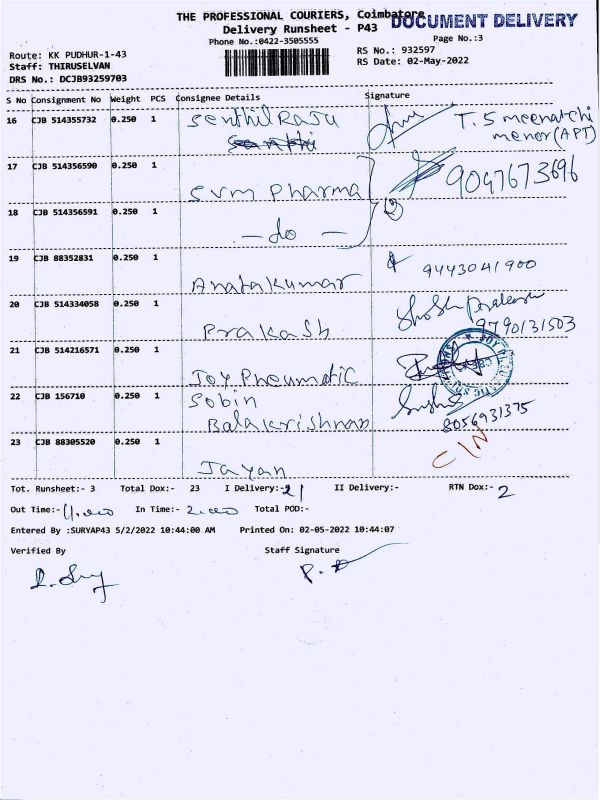 THE PROFESSIONAL COURIERS, Coimbatore
DOCUMENT DELIVERY
Delivery Runsheet - P43
Page No.:3
Phone No.:0422-3505555
Route: KK PUDHUR-1-43
RS No.: 932597
Staff: THIRUSELVAN
RS Date: 02-May-2022
DRS No.: DCJB93259703
S No Consignment No Weight PCS Consignee Details Signature
16 CJB 514355732 0.250 1 Senthil Raju T.S meenatchi
menor (APT)
17 CJB 514356590 0.250 1 SVM Pharma 9047673696
18 CJB 514356591 0.250 1 - do - 2
19 CJB 88352831 0.250 1 9443041900
20 CJB 514334058 0.250 1 Prakash 9790131503
21 CJB 514216571 0.250 1 Joy Pneumatic
22 CJB 156710 0.250 1 Sobin
Balakrishnan 8056931375
23 CJB 88305520 0.250 1 Jayan C/N
Tot. Runsheet:- 3 Total Dox:- 23 I Delivery:- 21 II Delivery:- RTN Dox:- 2
Out Time:- In Time:- Total POD:-
Entered By :SURYAP43 5/2/2022 10:44:00 AM Printed On: 02-05-2022 10:44:07
Verified By Staff Signature